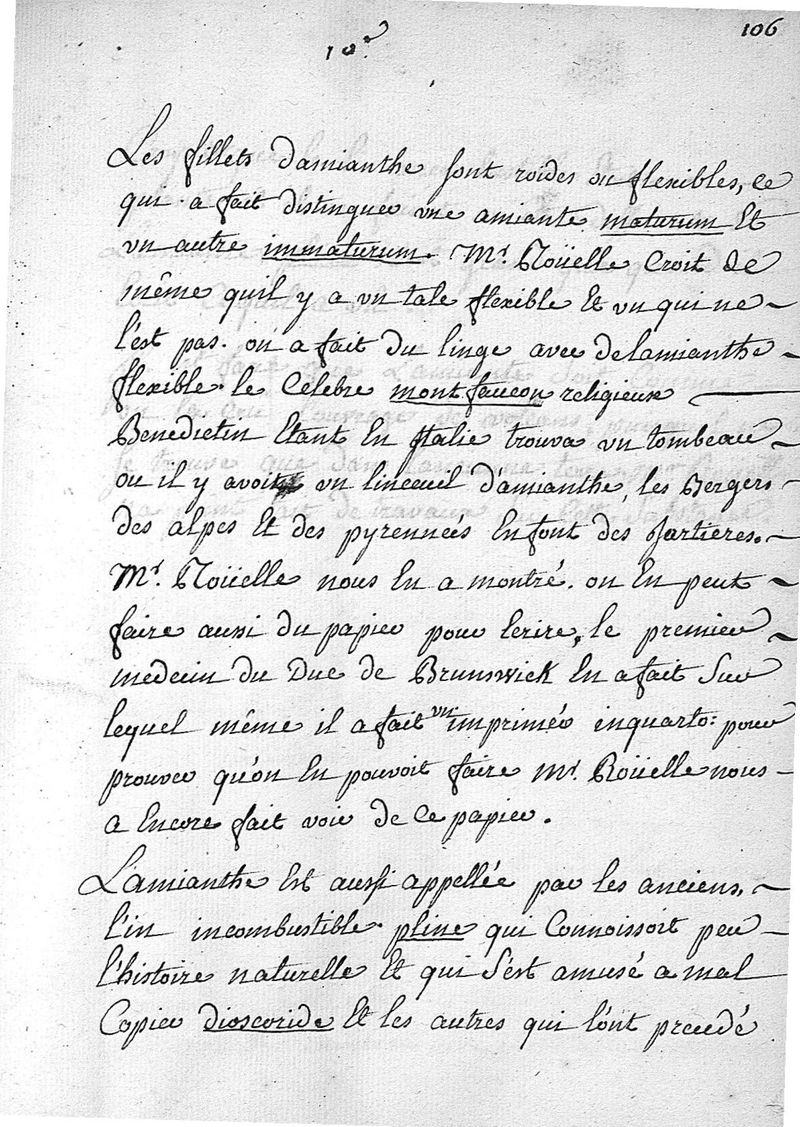 106
10e
Les fillets damianthe sont roides ou flexibles, ce
qui a fait distinguer une amiante maturum Et
un autre immaturum. Mr. Roüelle Croit de
même quil y a un talc flexible Et un qui ne
l'est pas. on a fait du linge avec de lamianthe
flexible. le Célebre montfaucon religieux
Benedictin Etant En Italie trouva un tombeau
ou il y avoit un linceuil d'amianthe, les Bergers
des alpes Et des pyrenneés En font des Jartieres.
Mr. Roüelle nous En a montré. on En peut
faire aussi du papier pour Ecrire, le premier
medecin du Duc de Brunswick En a fait Sur
lequel même il a fait un imprimér inquarto: pour
prouver qu'on En pouvoit faire Mr. Roüelle nous
a Encore fait voir de Ce papier.
L'amianthe Est aussi appellée par les anciens,
l'in incombustible. pline qui Connoissoit peu
l'histoire naturelle Et qui S'est amusé a mal
Copier dioscoride Et les autres qui l'ont précédé